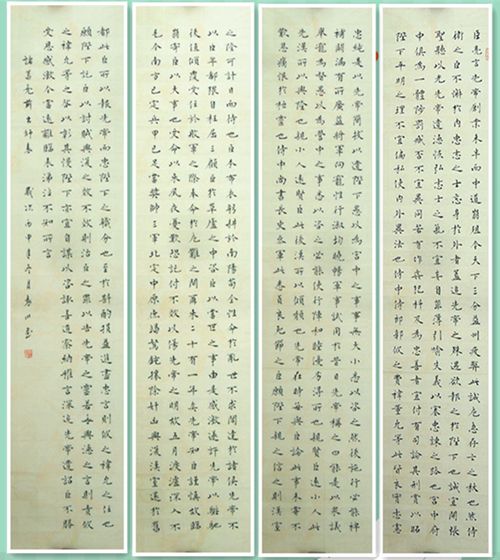 臣亮言先帝創業未半而中道崩殂今天下三分益州疲弊此誠危急存亡之秋也然侍
衛之臣不懈於內忠志之士忘身於外者蓋追先帝之殊遇欲報之於陛下也誠宜開張
聖聽以光先帝遺德恢弘志士之氣不宜妄自菲薄引喻失義以塞忠諫之路也宮中府
中俱為一體陟罰臧否不宜異同若有作奸犯科及為忠善者宜付有司論其刑賞以昭
陛下平明之理不宜偏私使內外異法也侍中侍郎郭攸之費禕董允等此皆良實志慮
忠純是以先帝簡拔以遺陛下愚以為宮中之事事無大小悉以咨之然後施行必能裨
補闕漏有所廣益將軍向寵性行淑均曉暢軍事試用於昔日先帝稱之曰能是以眾議
舉寵為督愚以為營中之事悉以咨之必能使行陣和睦優劣得所也親賢臣遠小人此
先漢所以興隆也親小人遠賢臣此後漢所以傾頹也先帝在時每與臣論此事未嘗不
歎息痛恨於桓靈也侍中尚書長史參軍此悉貞良死節之臣願陛下親之信之則漢室
之隆可計日而待也臣本布衣躬耕於南陽苟全性命於亂世不求聞達於諸侯先帝不
以臣卑鄙猥自枉屈三顧臣於草廬之中咨臣以當世之事由是感激遂許先帝以驅馳
後值傾覆受任於敗軍之際奉命於危難之間爾來二十有一年矣先帝知臣謹慎故臨
崩寄臣以大事也受命以來夙夜憂歎恐託付不效以傷先帝之明故五月渡瀘深入不
毛今南方已定兵甲已足當獎帥三軍北定中原庶竭駑鈍攘除奸凶興復漢室還於舊
都此臣所以報先帝而忠陛下之職分也至於斟酌損益進盡忠言則攸之禕允之任也
願陛下託臣以討賊興復之效不效則治臣之罪以告先帝之靈若無興德之言則責攸
之禕允等之咎以彰其慢陛下亦宜自謀以咨諏善道察納雅言深追先帝遺詔臣不勝
受恩感激今當遠離臨表涕泣不知所言
諸葛亮前出師表 歲次丙申年冬月